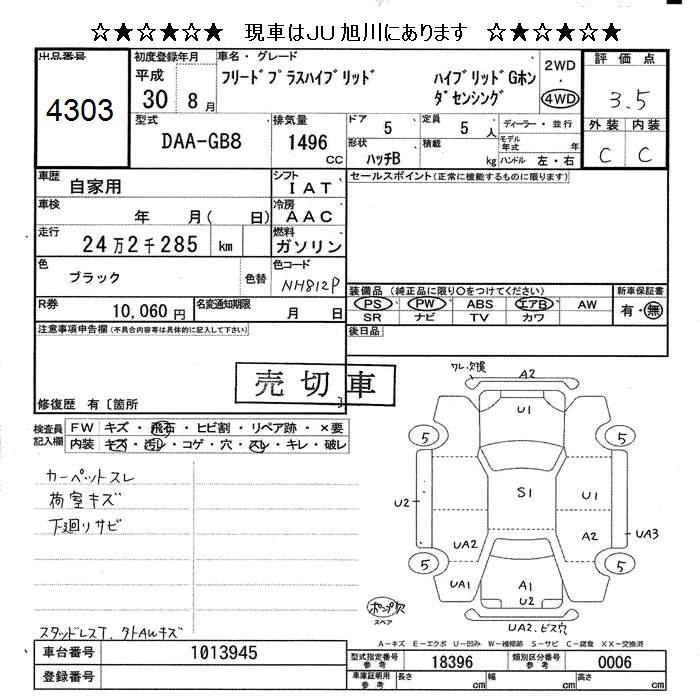 ☆★☆★☆★ 現車はJU旭川にあります ☆★☆★☆★
出品番号
4303
初度登録年月
平成
30 8月
車名・グレード
フリードプラスハイブリッド ハイブリッドGホン
ダセンシング
2WD
・
4WD
評価点
3.5
外装 内装
C C
型式
DAA-GB8
排気量
1496
cc
ドア 5
定員 5 人
ディーラー・並行
モデル年式 年
形状
ハッチB
積載 kg
ハンドル 左・右
車歴
自家用
シフト
IAT
セールスポイント(正常に機能するものに限ります)
車検
年 月( 日)
冷房
AAC
走行
24万2千285 km
燃料
ガソリン
色
ブラック
色替
色コード
NH812P
装備品 (純正品に限り○をつけてください)
新車保証書
PS PW ABS エアB AW
有・無
SR ナビ TV カワ
R券
10,060円
名変通知期限
月 日
後日品
注意事項申告欄(不具合内容等は具体的に記入して下さい)
売切車
修復歴 有〔箇所 〕
検査員
記入欄
FW キズ・飛石・ヒビ割・リペア跡・×要
内装 キズ・汚レ・コゲ・穴・スレ・キレ・破レ
カーペットスレ
荷室キズ
下廻りサビ
スタッドレスT.
ワレ・欠損
A2
U1
5
5
U2
S1
U1
A2
UA3
UA2
5
5
UA1
A1
U2
ポンプ欠
スペア
UA2.ビス穴
A-キズ E-エクボ U-凹み W-補修跡 S-サビ C-腐食 XX-交換済
車台番号
1013945
登録番号
型式指定番号
参考
18396
類別区分番号
参考
0006
車庫証明用
参考
長さ cm
幅 cm
高さ cm